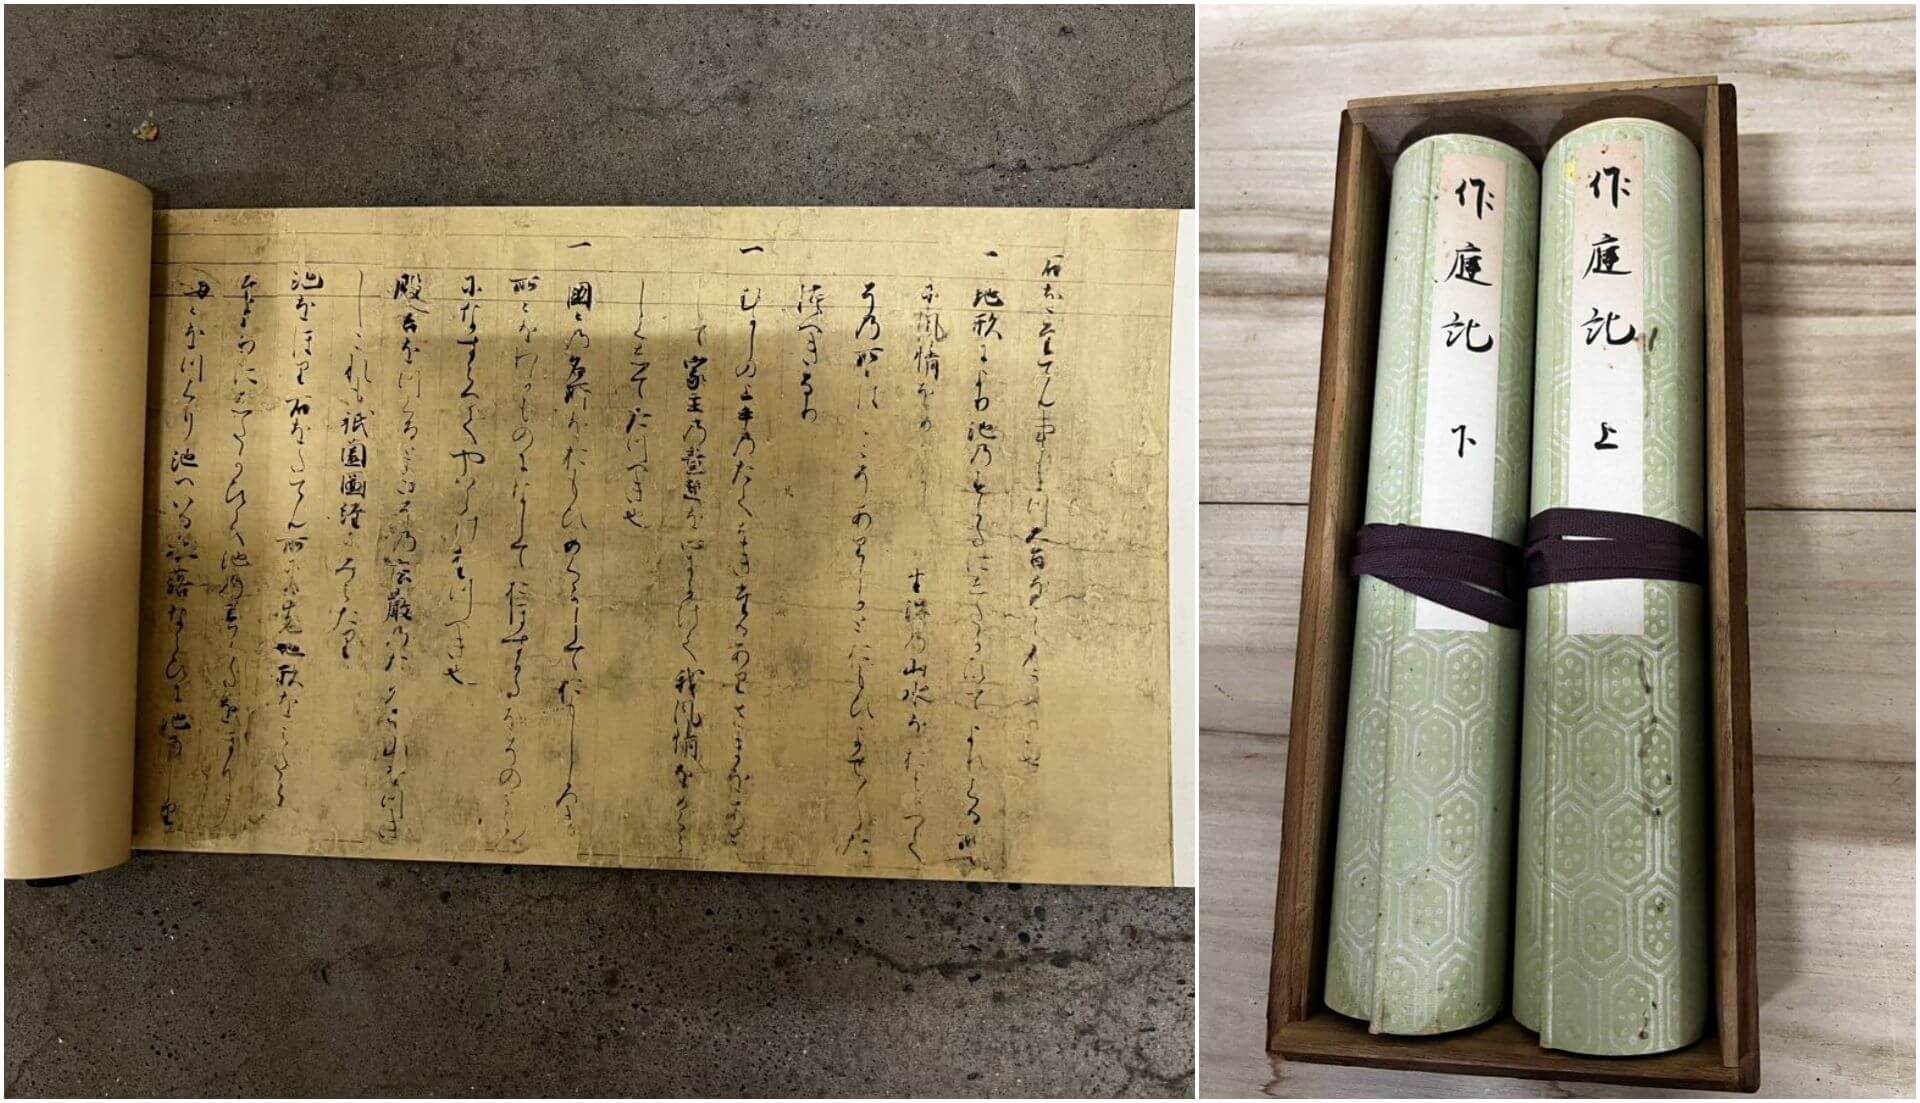 石をたてん事まつ大旨をこゝろふへき也
一 地形により池のすかたにしたかひてよりくる所々
に風情をめくらして生得の山水をおもはへて
その所々はさこそありしかとおもひよせ〳〵た
つへきなり
一 むかしの上手のたてをきたるありさまをあとと
して家主の意趣を心にかけて我風情をめくら
してたつへき也
一 國々の名所をおもひめくらしておもしろき
所々をわかものになしておほすかたをそのところ
になすらへてやはらけたつへき也
殿舎をつくるときその荘嚴のために山をつき
しこれも祇園圖經にみえたり
池をほり石をたてん所には先地形をみたて
たよりにしたかひて池のすかたをほり
嶋々をつくり池へいる水落ならひに池のしり
作庭記 上
作庭記 下